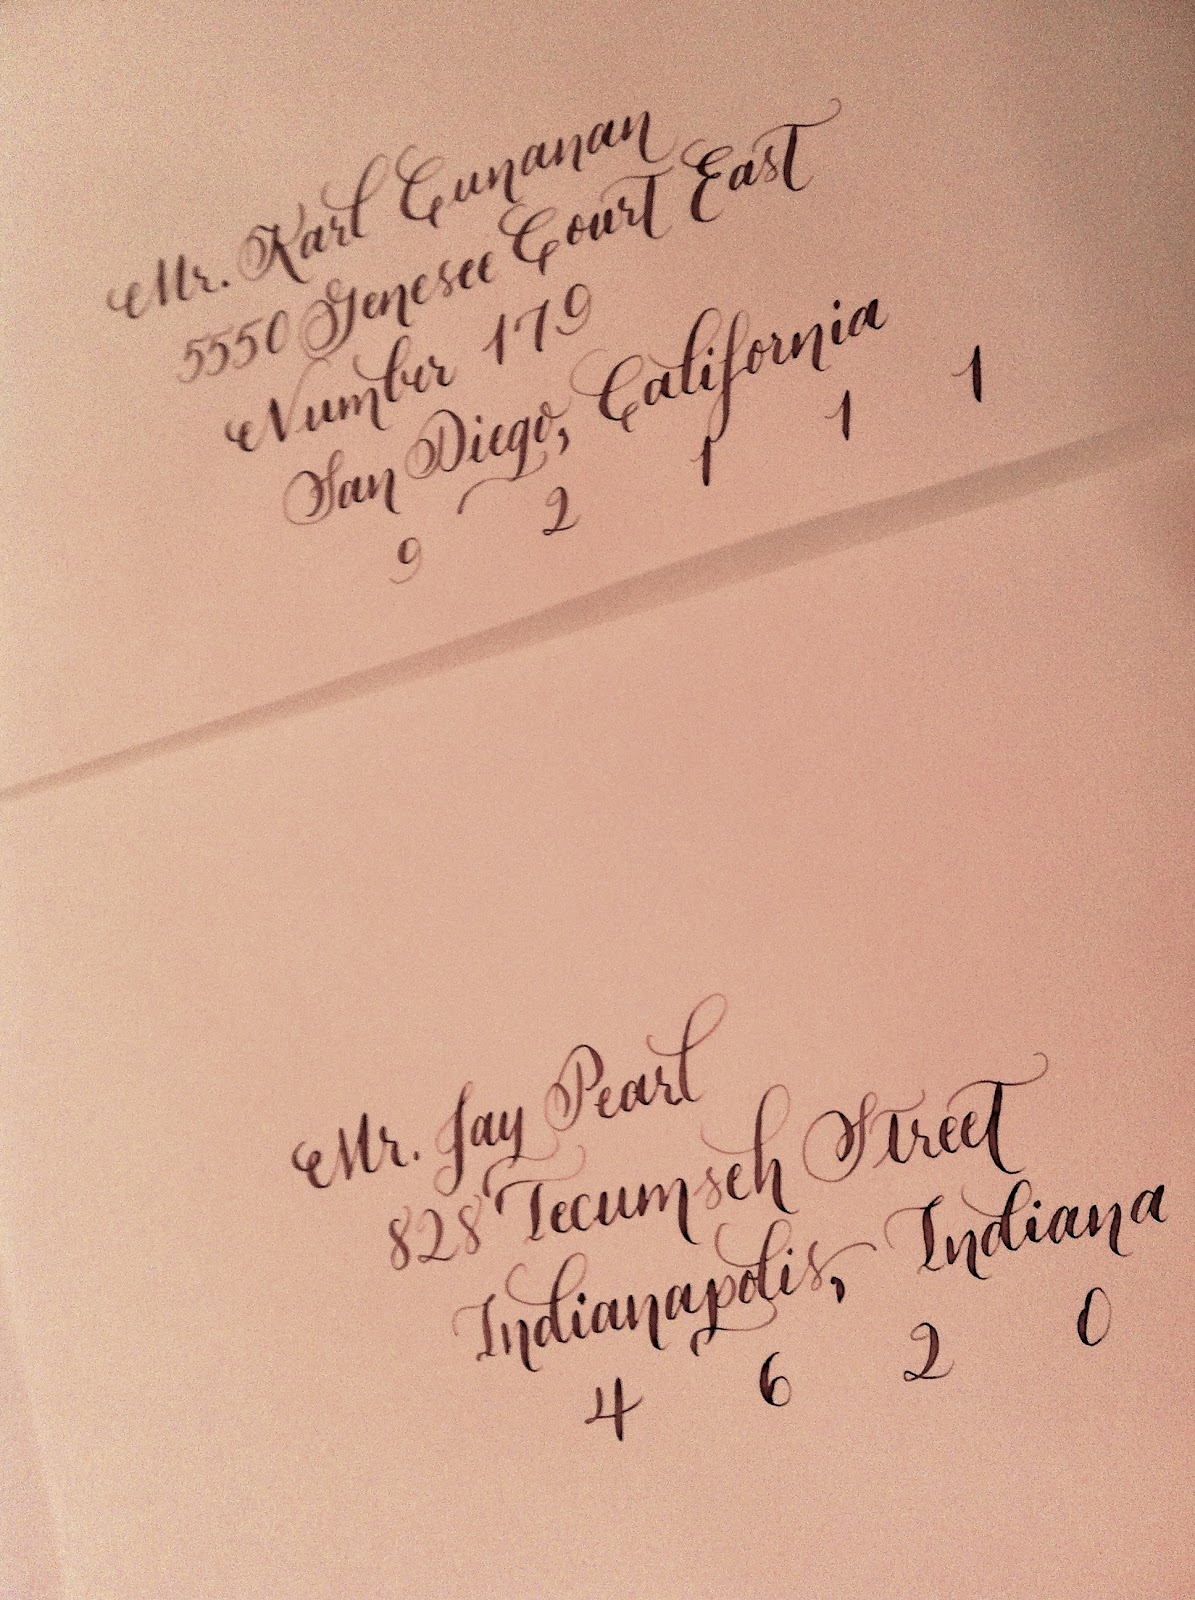 Mr. Karl Cunanan
5550 Genesee Court East
Number 179
San Diego, California
9 2 1 1 1
Mr. Jay Pearl
828 Tecumseh Street
Indianapolis, Indiana
4 6 2 0